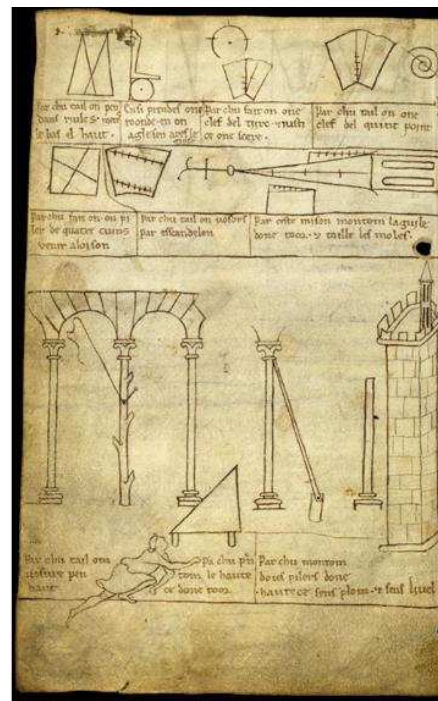 Par chu tail on pen
dans riules
le bas el haut.
Ensi prendes one
roonde en on
Par chu fait on one
clef del tierc
Par chu tail on one
clef del quint point
Par chu fait on on pi
ler de quater cuins
venir a loison
Par chu tail on vosors
par escandelon
Par ceste raison montom la guile
done toor. z taille les moles.
Par chu tail om
vosure pen
Par chu prn
tom le haute
ce done toor.
Par chu montom
dous pilers done
hautece sens plom. z sens livel